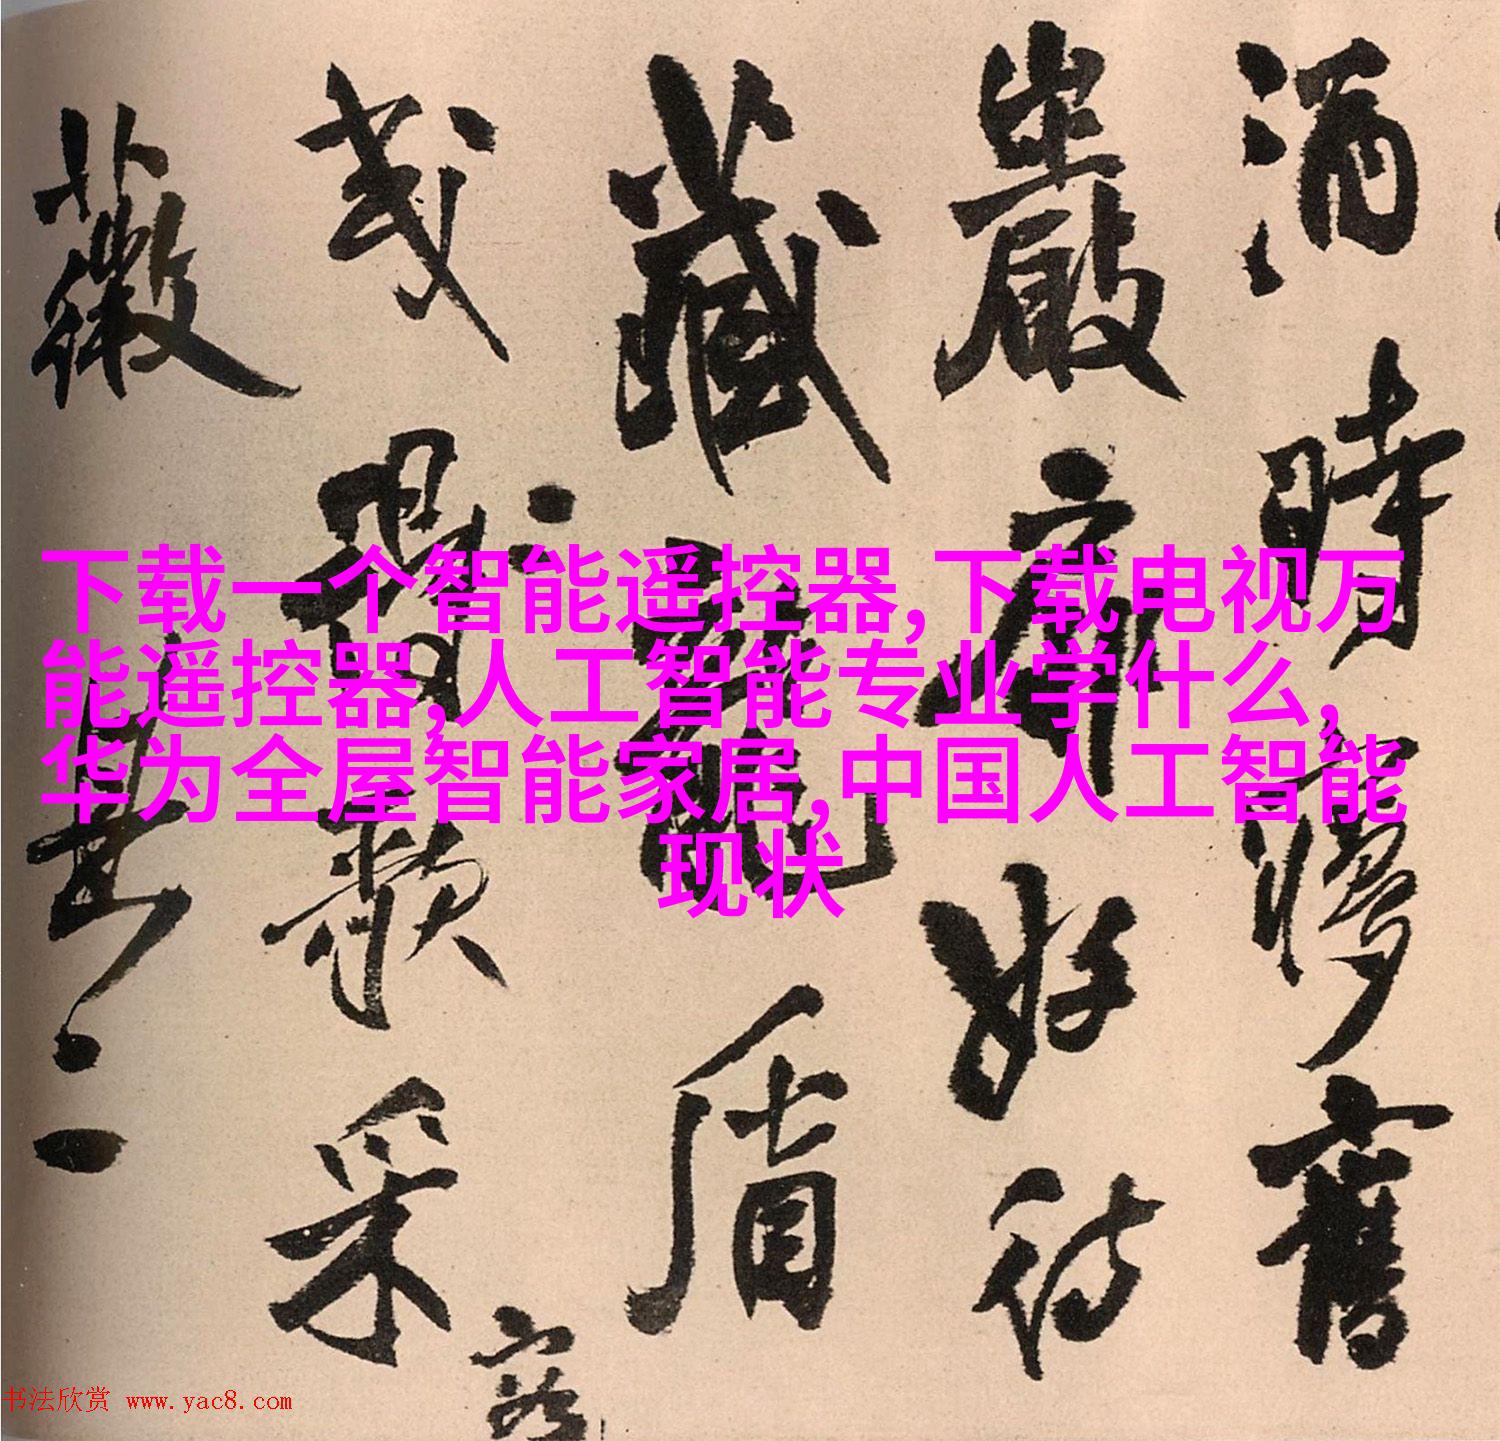 酒時舊
巖廊好待
藏龍
我歌采
薇
下载一个智能遥控器,下载电视万
能遥控器,人工智能专业学什么,
华为全屋智能家居,中国人工智能
现状
书法欣赏 www.yac8.com